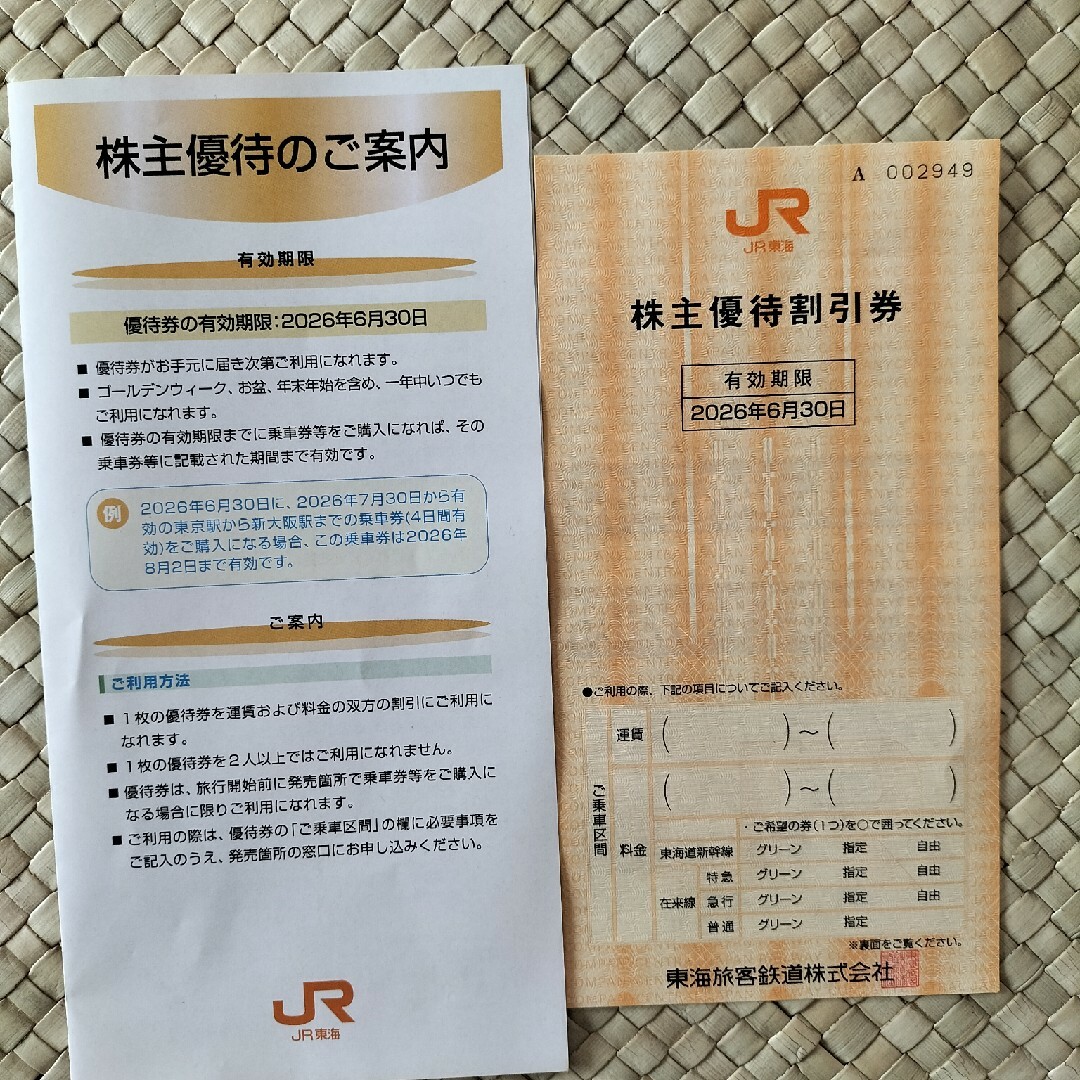 株主優待のご案内
有効期限
優待券の有効期限:2026年6月30日
■ 優待券がお手元に届き次第ご利用になれます。
■ ゴールデンウィーク、お盆、年末年始を含め、一年中いつでも
ご利用になれます。
■ 優待券の有効期限までに乗車券等をご購入になれば、その
乗車券等に記載された期間まで有効です。
例
2026年6月30日に、2026年7月30日から有
効の東京駅から新大阪駅までの乗車券(4日間有
効)をご購入になる場合、この乗車券は2026年
8月2日まで有効です。
ご案内
ご利用方法
■ 1枚の優待券を運賃および料金の双方の割引にご利用に
なれます。
■ 1枚の優待券を2人以上ではご利用になれません。
■ 優待券は、旅行開始前に発売箇所で乗車券等をご購入に
なる場合に限りご利用になれます。
■ ご利用の際は、優待券の「ご乗車区間」の欄に必要事項を
ご記入のうえ、発売箇所の窓口にお申し込みください。
JR
JR東海
A 002949
JR
JR東海
株主優待割引券
有効期限
2026年6月30日
●ご利用の際、下記の項目についてご記入ください。
ご乗車区間
運賃 ( )~( )
( )~( )
料金
・ご希望の券(1つ)を○で囲ってください。
東海道新幹線 グリーン 指定 自由
在来線
特急 グリーン 指定 自由
急行 グリーン 指定 自由
普通 グリーン 指定
※裏面をご覧ください。
東海旅客鉄道株式会社